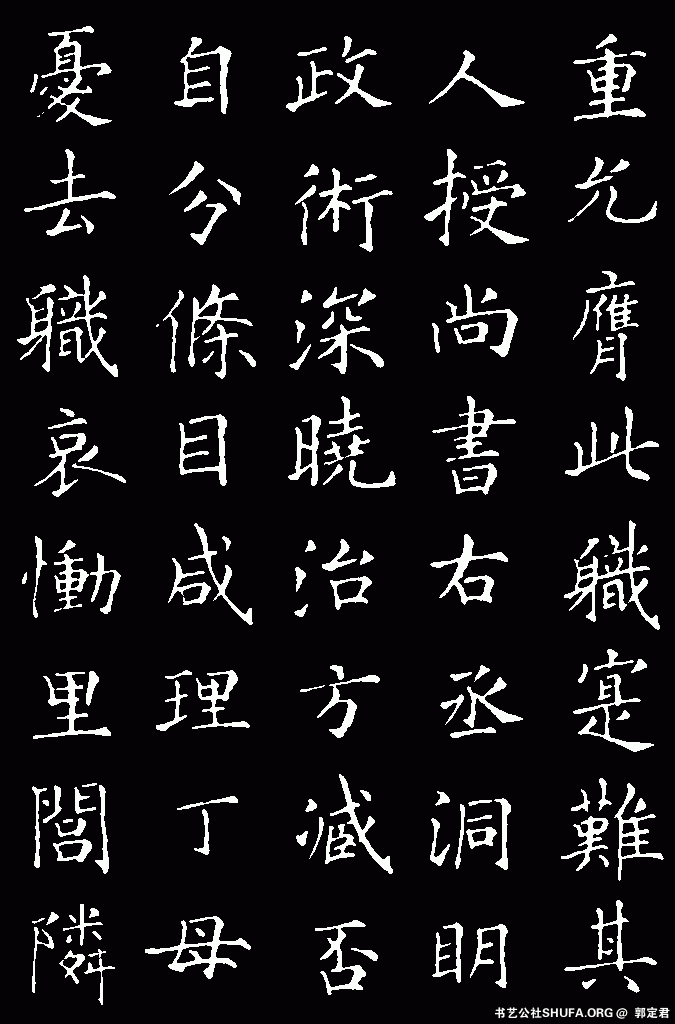 重允膺此職寔難其
人授尚書右丞洞明
政術深曉治方臧否
自分條目咸理丁母
憂去職哀慟里閭隣
书艺公社SHUFA.ORG @ 郭定君